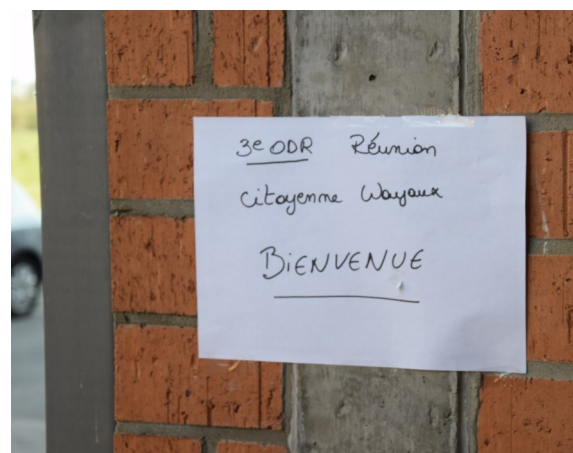 3e ODR Réunion
Citoyenne Wayaux
BIENVENUE